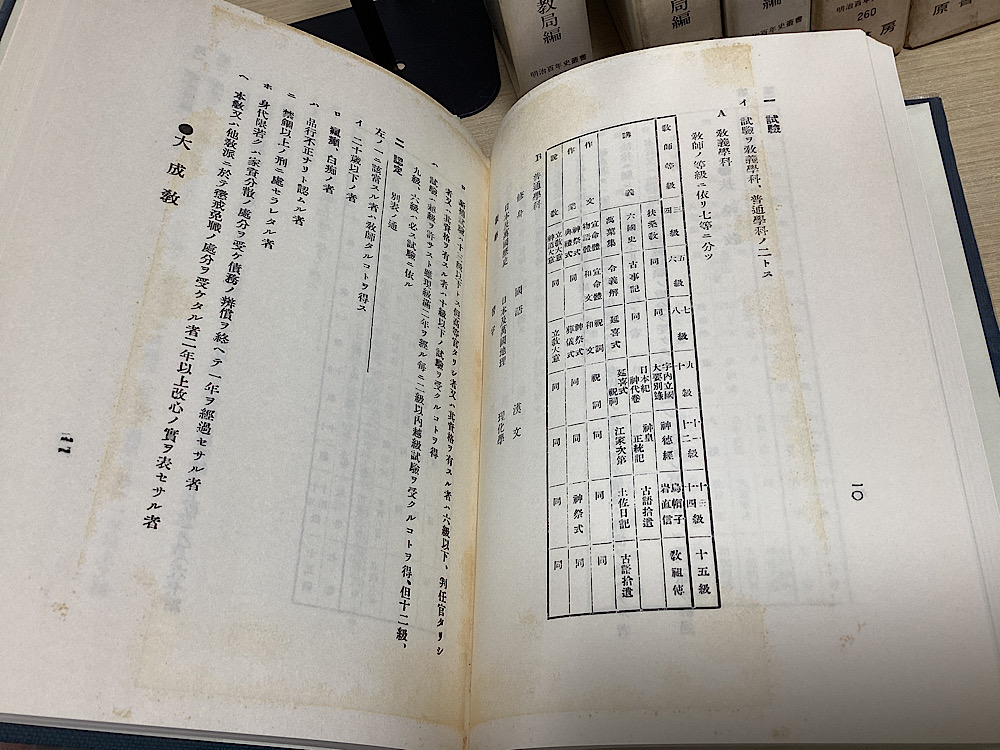 教局編
明治百年史叢書
局編
明治百年史叢書
編
明治百年史叢書
明治百年
260
房
原書
一 試驗
イ 試驗ヲ敎義學科、普通學科ノ二トス
A 敎義學科
敎師ノ等級ニ依リ七等ニ分ツ
敎師等級 三四級 五六級 七八級 九十級 十一十二級 十三十四級 十五級
扶桑敎 同 同 宇内立國大要別錄 神德經 烏帽子岩直信 敎祖傳
講義 六國史 古事記 同 日本紀神代卷 神皇正統記 古語拾遺
萬葉集 令義解 延喜式 延喜式祝詞 江家次第 土佐日記 古語拾遺
作文 宣命體物語體 宣命體和文 祝詞和文 祝詞 同 同 同
作業 神祭式典禮式 同 神祭式葬儀式 同 同 神祭式 同
說敎 立敎大意神道大意 同 立敎大意 同 同 同 同
B 普通學科
修身 國語 漢文
日本及萬國歷史 日本及萬國地理 理化學
者又ハ其資格ヲ有スル者ハ十級以下ノ試驗ヲ受クルコトヲ得
試驗ハ超級ヲ許サスト雖現級滿二年ヲ經ル每ニ二級以內越級試驗ヲ受クルコトヲ得、但十二級、
九級、六級ハ必ス試驗ニ依ル
二 認定 別表ノ通
左ノ一ニ該當スル者ハ敎師タルコトヲ得ス
イ 二十歲以下ノ者
ロ 瘋癲、白痴ノ者
ハ 品行不正ナリト認ムル者
ニ 禁錮以上ノ刑ニ處セラレタル者
ホ 身代限若クハ家資分散ノ處分ヲ受ケ債務ノ辨償ヲ終ヘテ一年ヲ經過セサル者
ヘ 本敎又ハ他敎派ニ於テ懲戒免職ノ處分ヲ受ケタル者二年以上改心ノ實ヲ表セサル者
●大成敎
一〇
一一